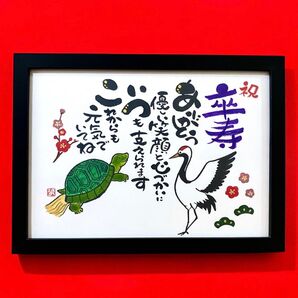 祝
卒寿
ありがとう
優しい笑顔と心づかいに
いつも支えられてます
これからも
元気で
いてね